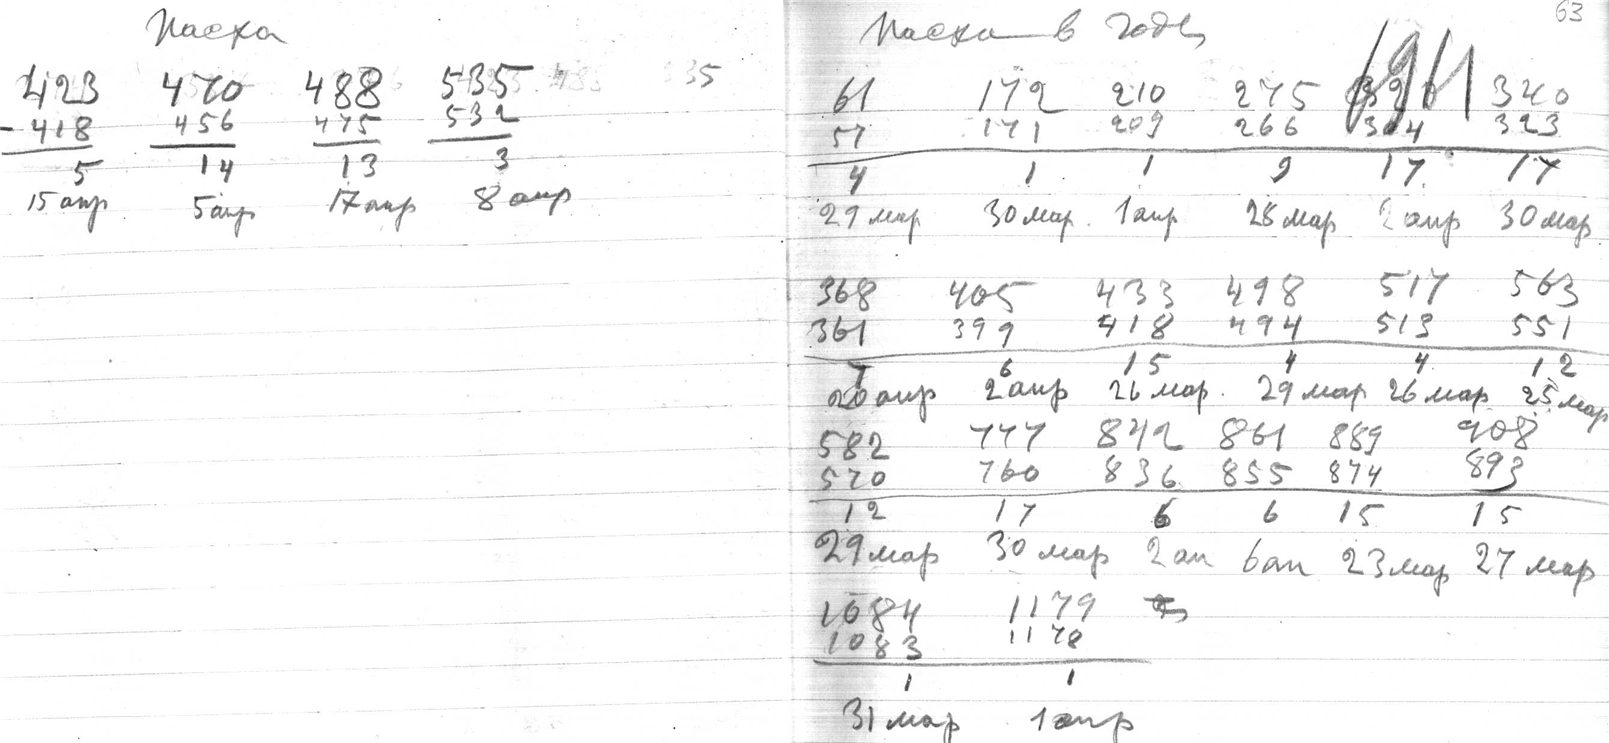 Пасха
423 470 488 535
- 418 456 475 532
5 14 13 3
15 апр 5 апр 17 апр 8 апр
535
63
Пасха в годы
61 172 210 275 321 340
57 171 209 266 304 323
4 1 1 9 17 17
29 мар 30 мар. 1 апр 28 мар 2 апр 30 мар
368 405 433 498 517 563
361 399 418 494 513 551
7 6 15 4 4 12
20 апр 2 апр 26 мар. 29 мар 26 мар 25 мар
582 777 842 861 889 908
570 760 836 855 874 893
12 17 6 6 15 15
29 мар 30 мар 2 ап 6 ап 23 мар 27 мар
1084 1179
1083 1178
1 1
31 мар 1 апр